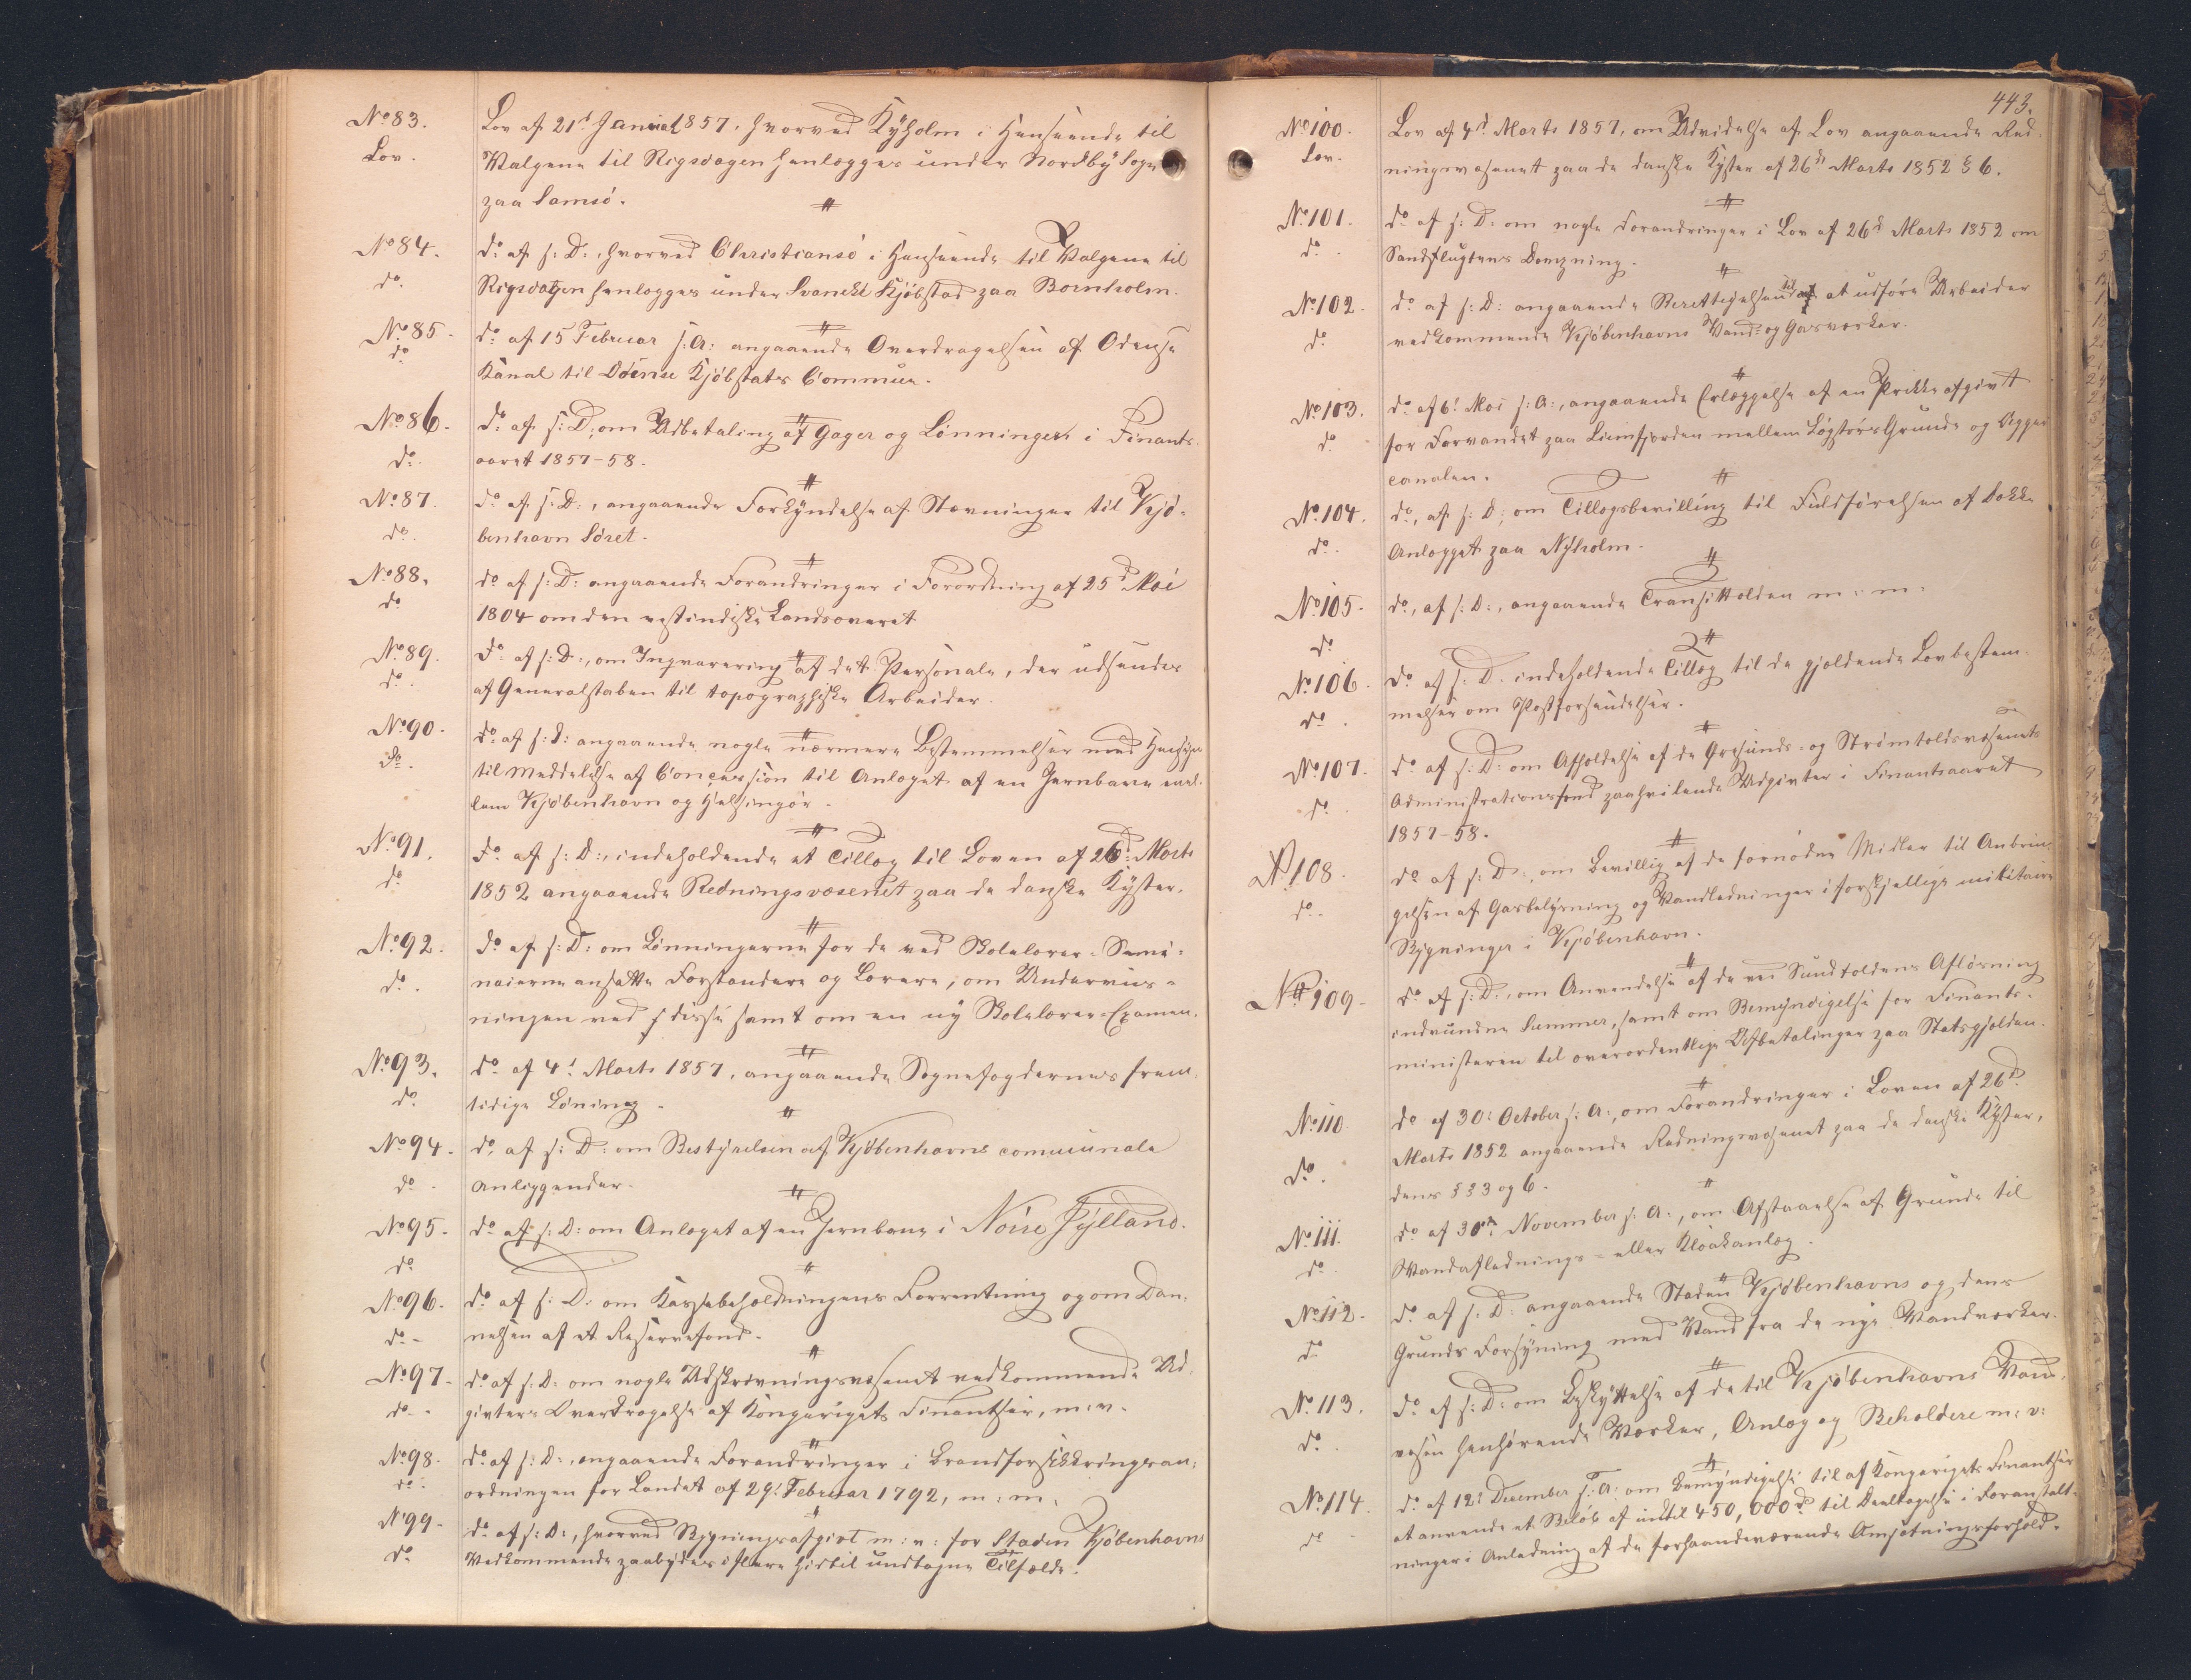 No 83. Lov af 21d Januar 1857, hvorved Kyholm i Henseende til
Lov. Valgene til Rigsdagen henlægges under Nordby Sogn
paa Samsö.
No 84. do af s: D:, hvorved Christiansö i Henseende til Valgene til
do. Rigsdagen henlægges under Svaneke Kjöbstad paa Bornholm.
No 85. do af 15 Februar s: A: angaaende Overdragelsen af Odense
do Kanal til Odense Kjöbstads Commun.
No 86. do af s: D: om Udbetaling af Gager og Lönninger i Finants-
do. aaret 1857-58.
No 87. do af s: D:, angaaende Forkyndelse af Stævninger til Kjö-
do. benhavn Söret.
No 88. do af s: D: angaaende Forandringer i Forordning af 25d Mai
do 1804 om den vestindiske Landsoveret
No 89. do af s: D:, om Inqvarering af det Personale, der udsendes
do. af Generalstaben til topographiske Arbeider.
No 90. do af s: D: angaaende nogle nærmere Bestemmelser med Hensyn
do. til Meddelelse af Concession til Anlæget af en Jernbane mel-
lem Kjöbenhavn og Helsingör.
No 91. do af s: D:, indeholdende et Tillæg til Loven af 26d: Marts
do 1852 angaaende Redningsvæsenet paa de danske Kyster.
No 92. do af s: D: om Lönningerne for de ved Skolelærer-Semi-
do. naierne ansatte Forstandere og Lærere, om Underviis-
ningen ved disse samt om en ny Skolelærer-Examen.
No 93. do af 4d Marts 1857, angaaende Sognefogdernes frem-
do. tidige Löning.
No 94. do, af s: D: om Bestyrelsen af Kjöbenhavns communale
do. Anliggender.
No 95. do af s: D: om Anlæget af en Jernbane i Nörre Jylland.
do
No 96. do af s: D: om Kassebeholdningens Forrentning og om Dan-
do nelsen af et Reservefond.
No 97. do af s: D: om nogle Udskrivningsvæsenet vedkommende Ud-
do. givters Overdragelse af Kongerigets Finantser, m: v.
No 98. do af s: D:, angaaende Forandringer i Brandforsikkringsan-
do. ordningen for Landet af 29: Februar 1792, m: m.
No 99. do af s: D:, hvorved Bygningsafgivt m: v: for Staden Kjöbenhavns
do Vedkommende paabydes i flere hidtil undtagne Tilfælde.
443.
No 100. Lov af 4d Marts 1857, om Udvidelse af Lov angaaende Red-
Lov. ningsvæsenet paa de danske Kyster af 26d Marts 1852 § 6.
No 101. do af s: D: om nogle Forandringer i Lov af 26d Marts 1852 om
do. Sandflugtens Dæmpning.
No 102. do af s: D: angaaende Berettigelsen til at udföre Arbeider
do vedkommende Kjöbenhavns Vand- og Gasværker.
No 103. do af 6d Mai s: A:, angaaende Erlæggelse af en Prikkeafgivt
do for Farvandet paa Liimfjorden mellem Lögstörs Grunde og Agger
canalen.
No 104. do, af s: D; om Tillægsbevilling til Fuldförelsen af Dokke
do. Anlægget paa Nyholm.
No 105. do, af s: D:, angaaende Transittolden m: m:
do
No 106. do af s: D. indeholdende Tillæg til de gjeldende Lovbestem-
do. melser om Postforsendelser.
No 107. do af s: D: om Afholdelse af de Öresunds- og Strömtoldsvæsenets
do. Administrationsfond paahvilende Udgivter i Finantsaaret
1857-58.
No 108. do af s: D:, om Bevillig af de fornödne Midler til Anbrin-
do. gelsen af Gasbelysning og Vandledninger i forskjellige militaire
Bygninger i Kjöbenhavn.
No 109. do af s: D:, om Anvendelse af de ved Sundtoldens Aflösning
indvundne Summer, samt om Bemyndigelse for Finants-
ministeren til overordentlige Afbetalinger paa Statsgjælden.
No 110. do af 30: October s: A:, om Forandringer i Loven af 26d
do. Marts 1852 angaaende Redningsvæsenet paa de danske Kyster,
dens §§ 3 og 6.
No 111. do af 30te November s: A:, om Afstaaelse af Grunde til
do. Vandaflednings- eller Kloakanlæg.
No 112. do af s: D: angaaende Staden Kjöbenhavns og dens
do Grunds Forsyning med Vand fra de nye Vandværker.
No 113. do af s: D: om Beskyttelse af de til Kjöbenhavns Vand-
do. væsen henhörende Værker, Anlæg og Beholdere m: v:
No 114. do af 12: December s: A: om Bemyndigelse til af Kongerigets Finantser
do at anvende et Belöb af indtil 450,000 rd til Deeltagelse i Foranstalt-
ninger i Anledning af de forhaandenværende Omsætningsforhold.